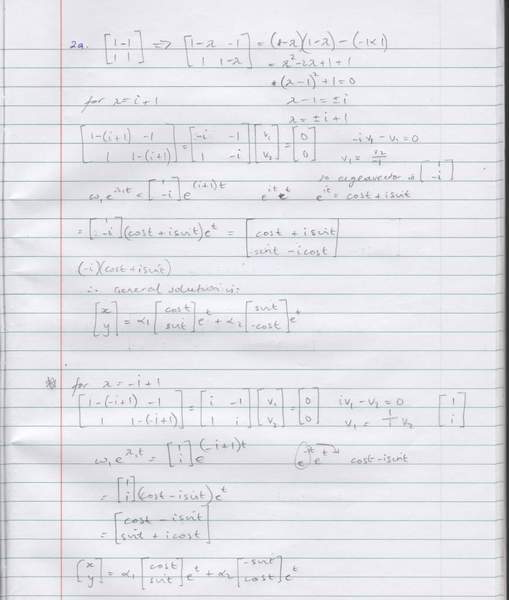 2a. [1 -1; 1 1] => [1-λ -1; 1 1-λ] = (1-λ)(1-λ) - (-1×1)
= λ²-2λ+1+1
(λ-1)²+1=0
for λ=i+1 λ-1=±i
λ=±i+1
[1-(i+1) -1; 1 1-(i+1)] = [-i -1; 1 -i] [v₁; v₂] = [0; 0] -iv₁-v₂=0
v₁ =
so eigenvector is [1; -i]
w₁e^(λ₁t) = [1; -i] e^((i+1)t) e^(it) e^t e^(it) = cost+isint
= [1; -i] (cost+isint)e^t = [cost+isint; sint-icost]
(-i)(cost+isint)
∴ general solution is:
[x; y] = α₁ [cost; sint] e^t + α₂ [sint; -cost] e^t
for λ=-i+1
[1-(-i+1) -1; 1 1-(-i+1)] = [i -1; 1 i] [v₁; v₂] = [0; 0] iv₁-v₂=0 [1; i]
v₁ = 1/i v₂
w₁e^(λ₁t) = [1; i] e^((-i+1)t) e^(-it) e^t cost-isint
= [1; i] (cost-isint)e^t
= [cost-isint; sint+icost]
[x; y] = α₁ [cost; sint] e^t + α₂ [-sint; cost] e^t